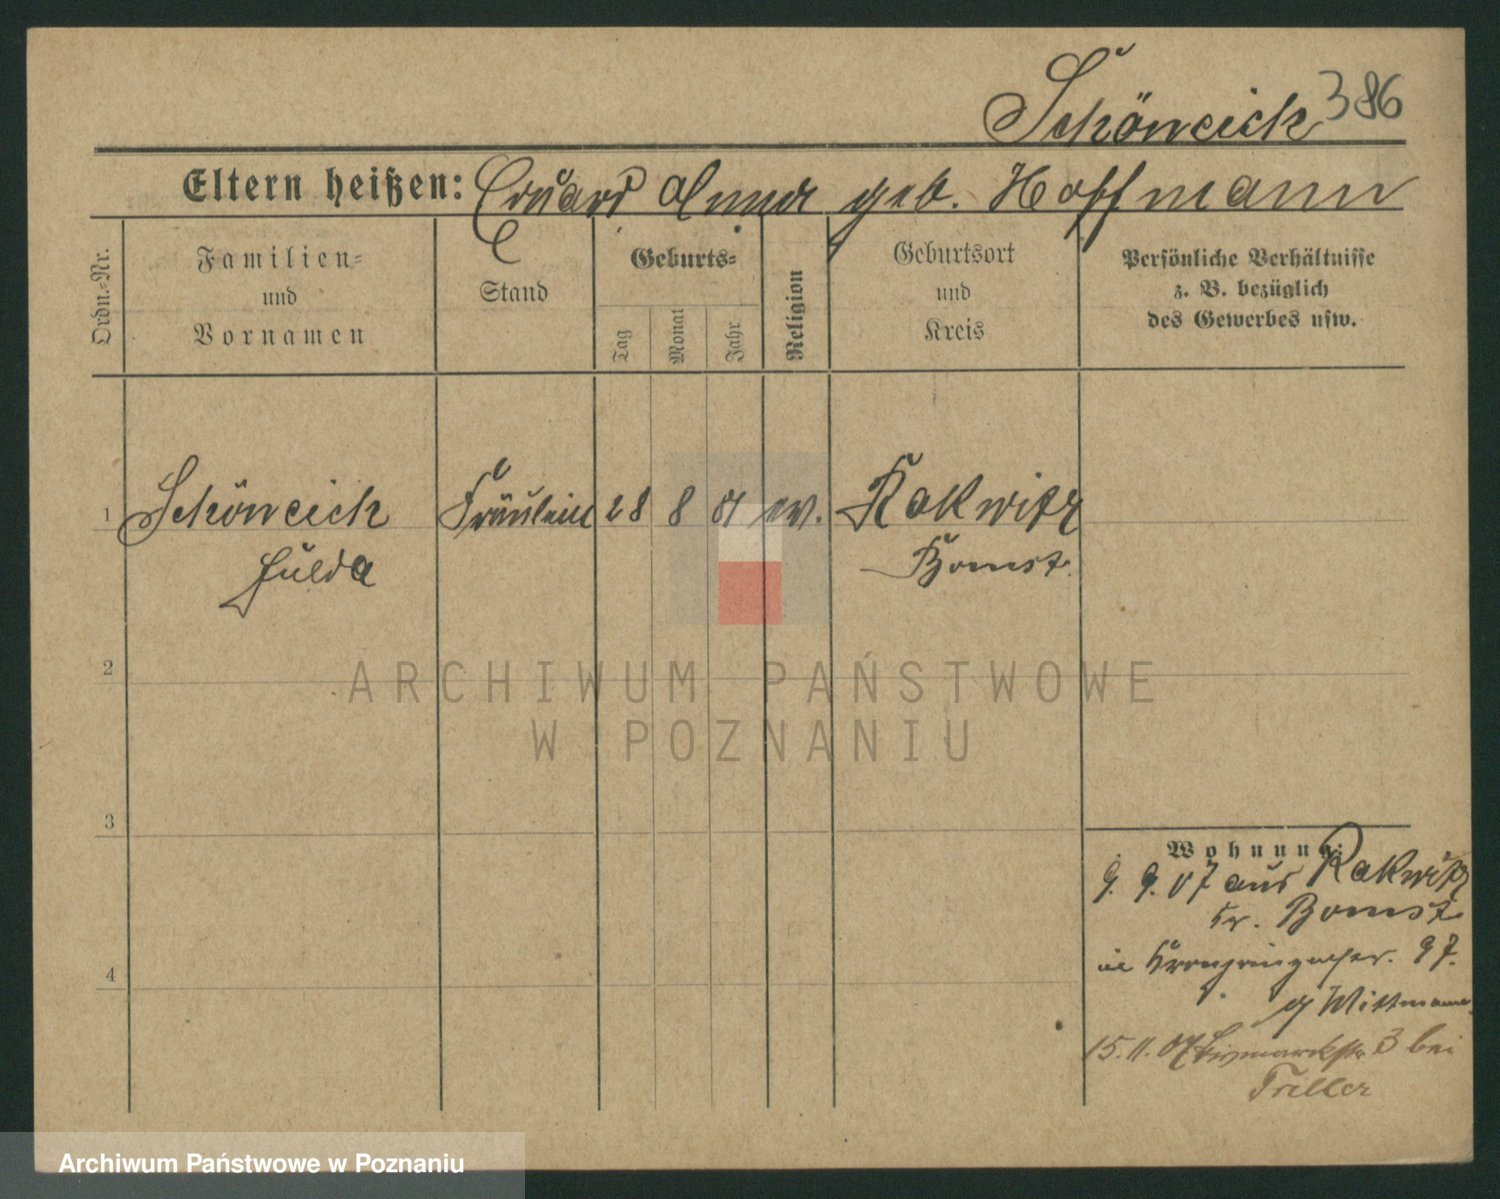 Schöneich 386
Eltern heißen: Eduard Anna geb. Hoffmann
Ordn.-Nr.
Familien- und Vornamen
Stand
Geburts-
Tag
Monat
Jahr
Religion
Geburtsort und Kreis
Persönliche Verhältnisse
z. B. bezüglich
des Gewerbes usw.
1 Schöneich Fräulein 28 8 81 ev. Rakwitz
Hulda Bomst.
2
3
4
Wohnung:
9. 9. 07 aus Rakwitz
Kr. Bomst.
in Kronprinzenstr. 97.
Wittmann
15.11.07 Bismarckstr. 3 bei
Triller
ARCHIWUM PAŃSTWOWE
W POZNANIU
Archiwum Państwowe w Poznaniu